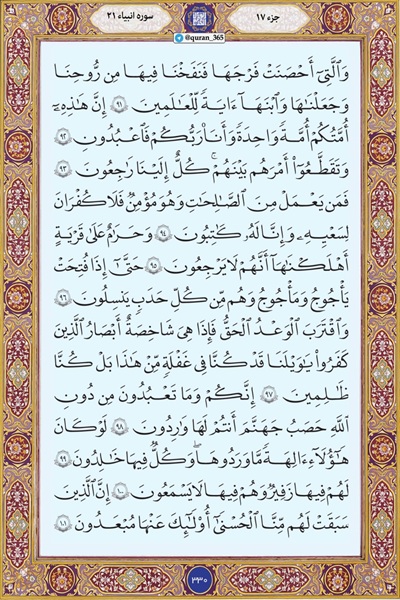 جزء ۱۷
@quran_365
سوره انبیاء ۲۱
وَٱلَّتِىٓ أَحْصَنَتْ فَرْجَهَا فَنَفَخْنَا فِيهَا مِن رُّوحِنَا
وَجَعَلْنَٰهَا وَٱبْنَهَآ ءَايَةً لِّلْعَٰلَمِينَ ۹۱ إِنَّ هَٰذِهِۦٓ
أُمَّتُكُمْ أُمَّةً وَٰحِدَةً وَأَنَا۠ رَبُّكُمْ فَٱعْبُدُونِ ۹۲
وَتَقَطَّعُوٓا۟ أَمْرَهُم بَيْنَهُمْ ۖ كُلٌّ إِلَيْنَا رَٰجِعُونَ ۹۳
فَمَن يَعْمَلْ مِنَ ٱلصَّٰلِحَٰتِ وَهُوَ مُؤْمِنٌ فَلَا كُفْرَانَ
لِسَعْيِهِۦ وَإِنَّا لَهُۥ كَٰتِبُونَ ۹۴ وَحَرَٰمٌ عَلَىٰ قَرْيَةٍ
أَهْلَكْنَٰهَآ أَنَّهُمْ لَا يَرْجِعُونَ ۹۵ حَتَّىٰٓ إِذَا فُتِحَتْ
يَأْجُوجُ وَمَأْجُوجُ وَهُم مِّن كُلِّ حَدَبٍ يَنسِلُونَ ۹۶
وَٱقْتَرَبَ ٱلْوَعْدُ ٱلْحَقُّ فَإِذَا هِىَ شَٰخِصَةٌ أَبْصَٰرُ ٱلَّذِينَ
كَفَرُوا۟ يَٰوَيْلَنَا قَدْ كُنَّا فِى غَفْلَةٍ مِّنْ هَٰذَا بَلْ كُنَّا
ظَٰلِمِينَ ۹۷ إِنَّكُمْ وَمَا تَعْبُدُونَ مِن دُونِ
ٱللَّهِ حَصَبُ جَهَنَّمَ أَنتُمْ لَهَا وَٰرِدُونَ ۹۸ لَوْ كَانَ
هَٰٓؤُلَآءِ ءَالِهَةً مَّا وَرَدُوهَا ۖ وَكُلٌّ فِيهَا خَٰلِدُونَ ۹۹
لَهُمْ فِيهَا زَفِيرٌ وَهُمْ فِيهَا لَا يَسْمَعُونَ ۱۰۰ إِنَّ ٱلَّذِينَ
سَبَقَتْ لَهُم مِّنَّا ٱلْحُسْنَىٰٓ أُو۟لَٰٓئِكَ عَنْهَا مُبْعَدُونَ ۱۰۱
۳۳۰